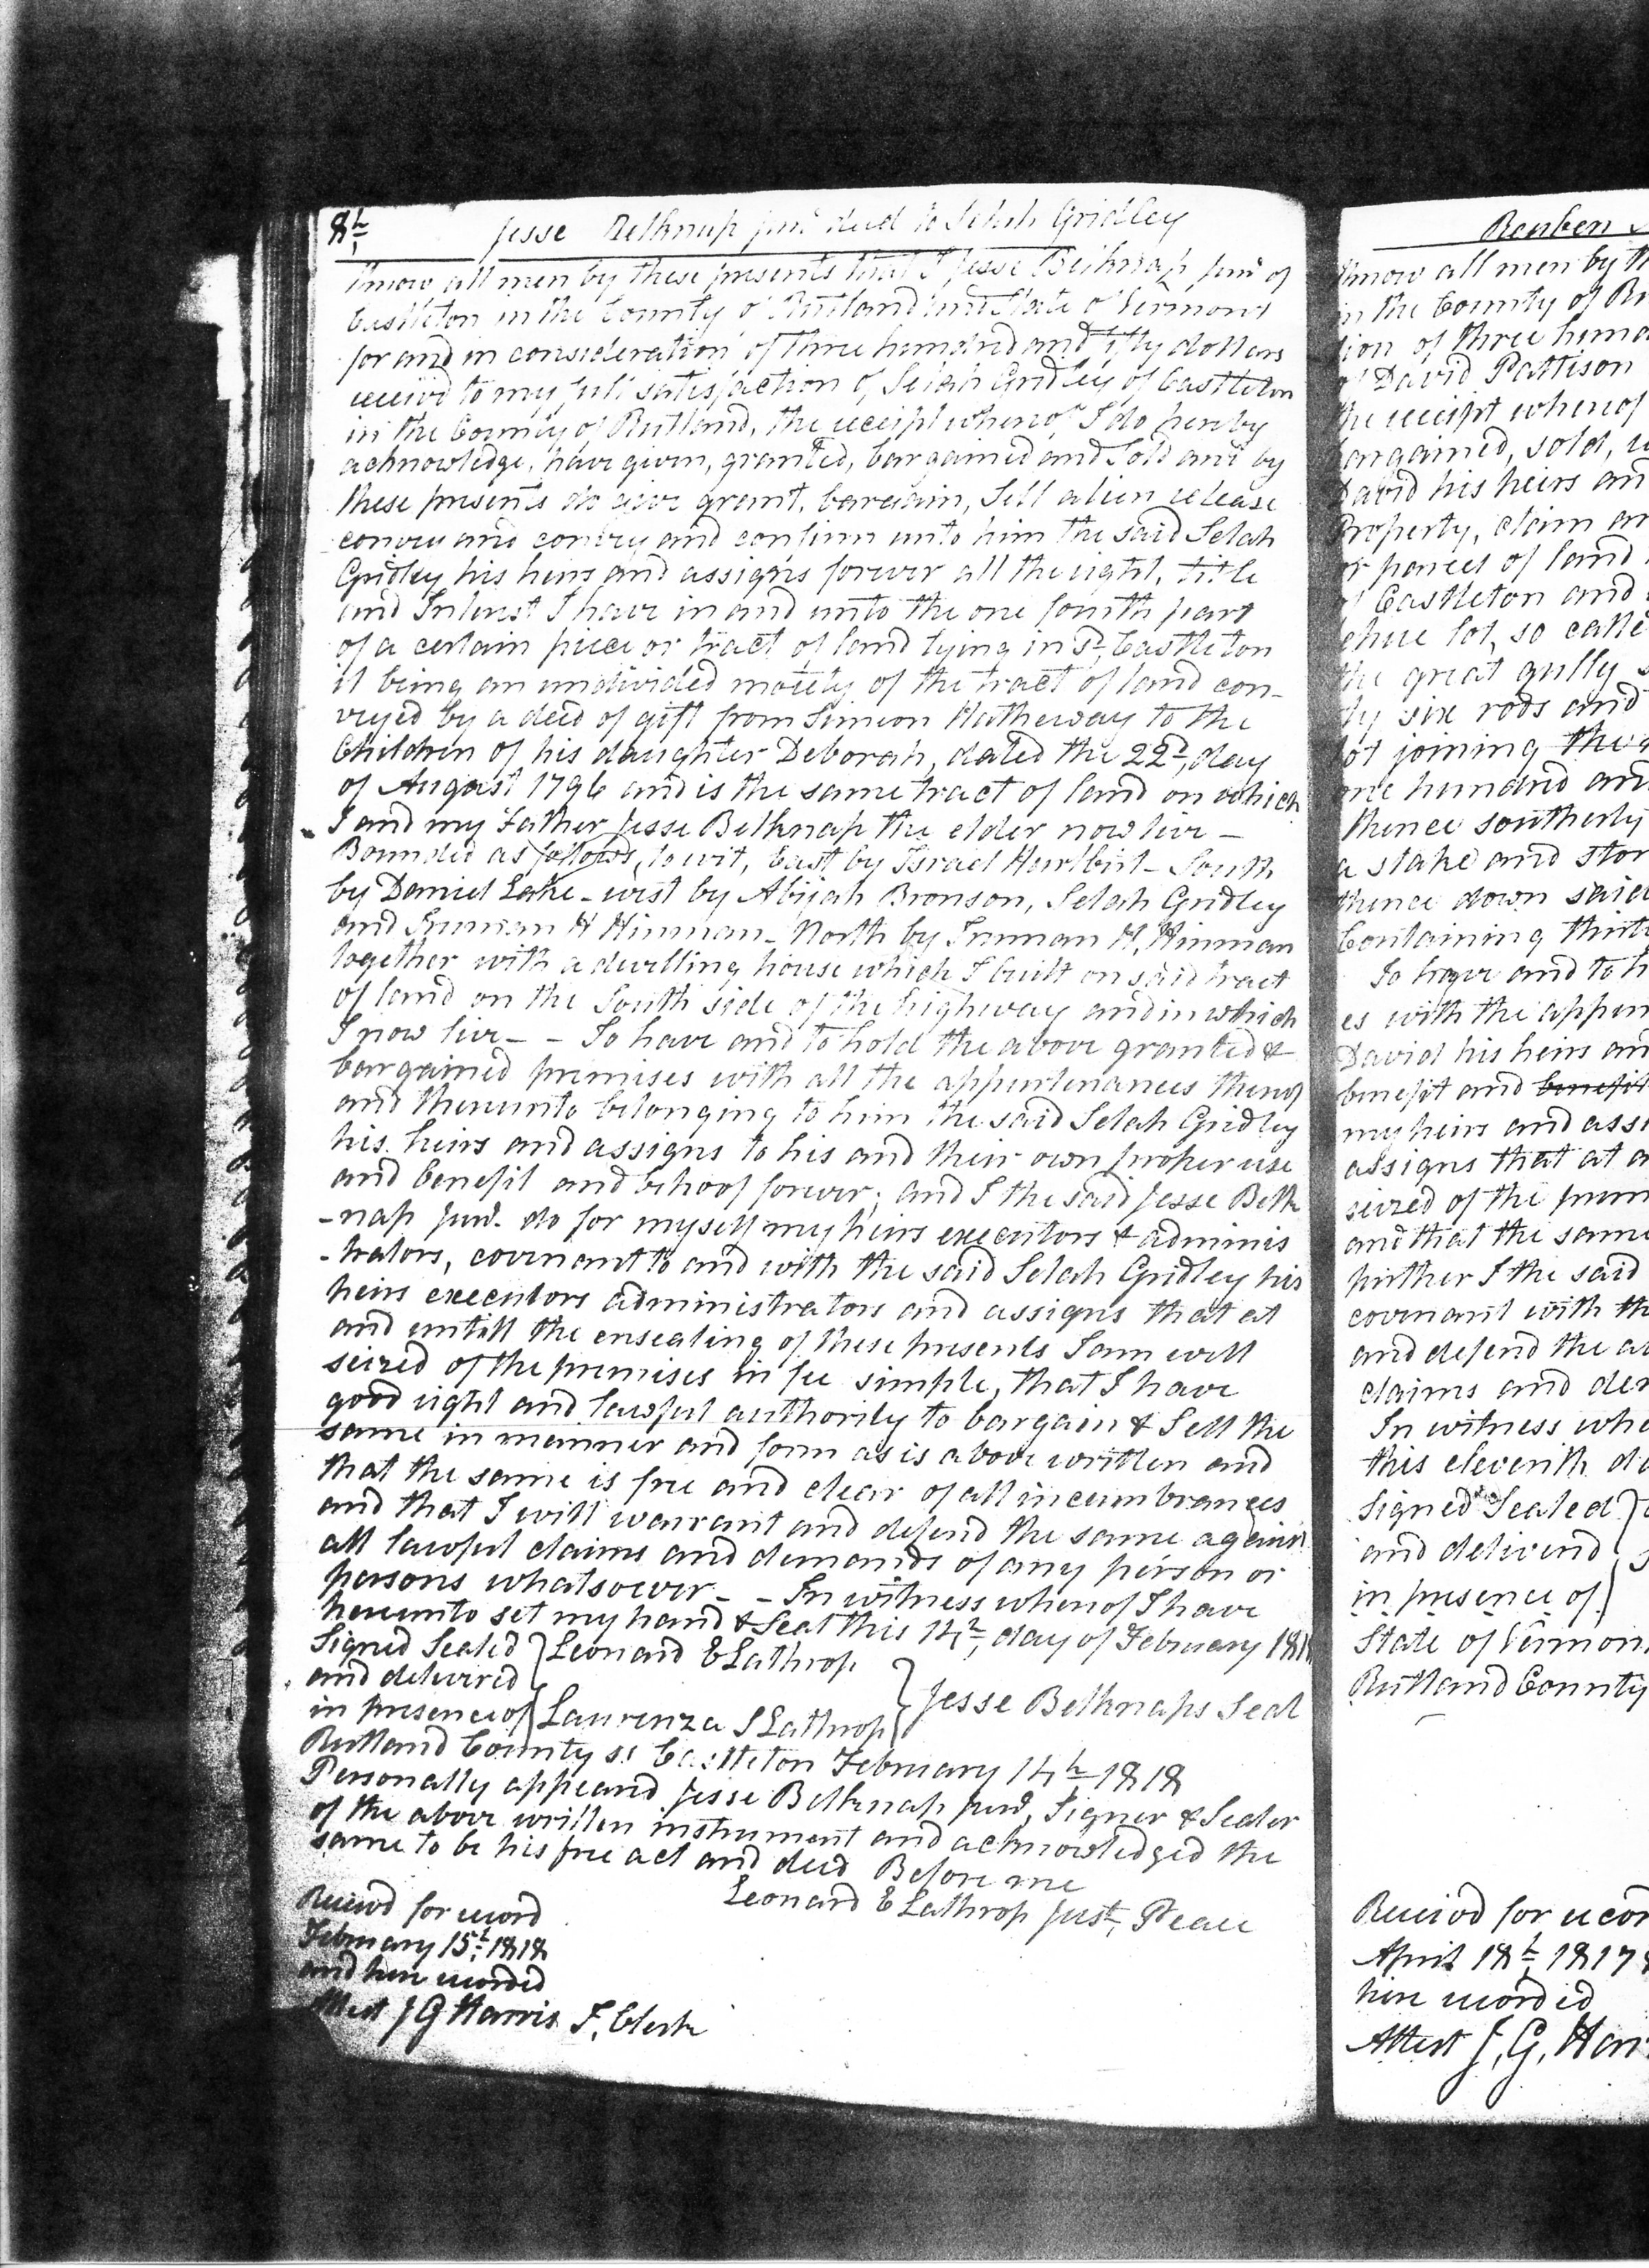 8th
Jesse Belknap junr deed to Selah Gridley
Know all men by these presents that I Jesse Belknap junr of
Castleton in the County of Rutland and State of Vermont
for and in consideration of three hundred and fifty dollars
receivd to my full satisfaction of Selah Gridley of Castleton
in the County of Rutland, the receipt whereof I do hereby
acknowledge, have given, granted, bargained and Sold and by
these presents do give grant, bargain, Sell alien release
convey and convey and confirm unto him the said Selah
Gridley his heirs and assigns forever all the right, title
and Interest I have in and unto the one fourth part
of a certain piece or tract of land lying in sd Castleton
it being an undivided moiety of the tract of land con-
veyed by a deed of gift from Simeon Hatheway to the
Children of his daughter Deborah, dated the 22d, day
of August 1796 and is the same tract of land on which
I and my Father Jesse Belknap the elder now live -
Bounded as follows, to wit, East by Israel Hurlbut - South
by Daniel Lake - west by Abijah Bronson, Selah Gridley
and Truman H Hinman - North by Truman H, Hinman
together with a dwelling house which I built on said tract
of land on the South side of the highway and in which
I now live - - To have and to hold the above granted &
bargained premises with all the appurtenances thereof
and thereunto belonging to him the said Selah Gridley
his heirs and assigns to his and their own proper use
and benefit and behoof forever; and I the said Jesse Belk
-nap junr. do for myself my heirs executors & adminis
-trators, covenant to and with the said Selah Gridley his
heirs executors administrators and assigns that at
and untill the ensealing of these presents I am well
seized of the premises in fee simple, that I have
good right and lawful authority to bargain & Sell the
same in manner and form as is above written and
that the same is free and clear of all incumbrances
and that I will warrant and defend the same against
all lawful claims and demands of any person or
persons whatsoever - - In witness whereof I have
hereunto set my hand & Seal this 14th, day of February 1818
Signed Sealed } Leonard E Lathrop
and delivered
in presence of } Laurenza S Lathrop } Jesse Belknaps Seal
Rutland County ss Castleton February 14th 1818
Personally appeard Jesse Belknap junr, Signer & Sealer
of the above written instrument and acknowledged the
same to be his free act and deed Before me
Leonard E Lathrop Just, Peace
Receivd for record
February 15th 1818
and here recorded
Attest J G Harris T, Clerk
Reuben
Know all men by th
in the County of Ru
tion of three hund
of David Pattison
the receipt whereof
bargained, sold,
David his heirs an
Property, claim an
or parcel of land
of Castleton and
lot, so calle
the great gully
ty six rods and
lot joining the
one hundred and
thence southerly
a stake and ston
thence down said
Containing thirt
To have and to h
es with the appur
David his heirs an
benefit and benefit
my heirs and assi
assigns that at a
seized of the prem
and that the same
further I the said
covenant with th
and defend the a
claims and dem
In witness whe
this eleventh da
Signed Sealed }
and deliverd
in presence of }
State of Vermon
Rutland County
Receivd for recor
April 18th 1817
here recorded
Attest J, G, Harr